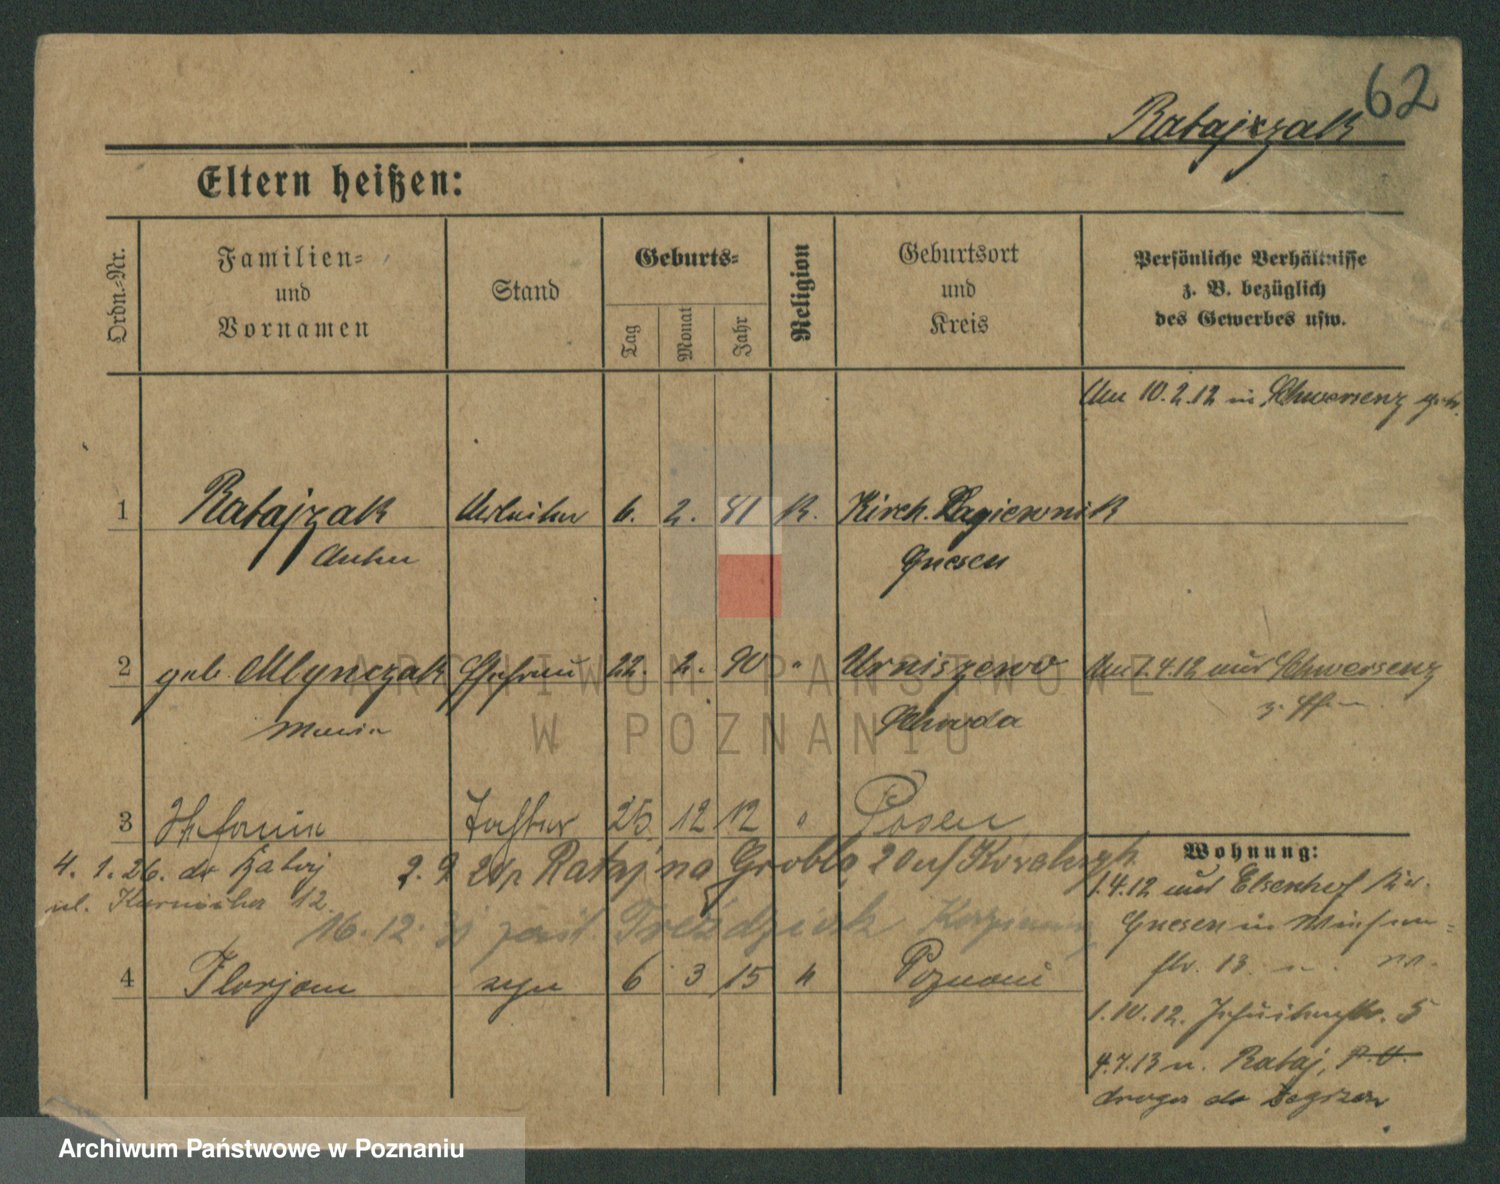 62
Ratajzak
Eltern heißen:
Ordn.-Nr.
Familien-
und
Vornamen
Stand
Geburts-
Tag
Monat
Jahr
Religion
Geburtsort
und
Kreis
Persönliche Verhältnisse
z. B. bezüglich
des Gewerbes usw.
Am 10.2.12 in Schwersenz
1 Ratajzak Arbeiter 6. 2. 81 K. Kirch. Lagiewnik
Gnesen
2 geb. Mlynczak Ehefrau 22. 2. 90 " Urniszewo Am 1.4.12 aus Schwersenz
Maria Schroda
3 Stefania Tochter 25. 12 12 " Posen
Wohnung:
4. 1. 26. do Rataj 2. 9. Rataj na Groblę 20
ul. 12. 1.4.12 aus Elsenhof Kr.
16.12 Gnesen in
4 Florjan syn 6 3 15 " Poznań
13
1.10.12. 5
4.7.13 n. Rataj,
droga do
ARCHIWUM PAŃSTWOWE
W POZNANIU
Archiwum Państwowe w Poznaniu